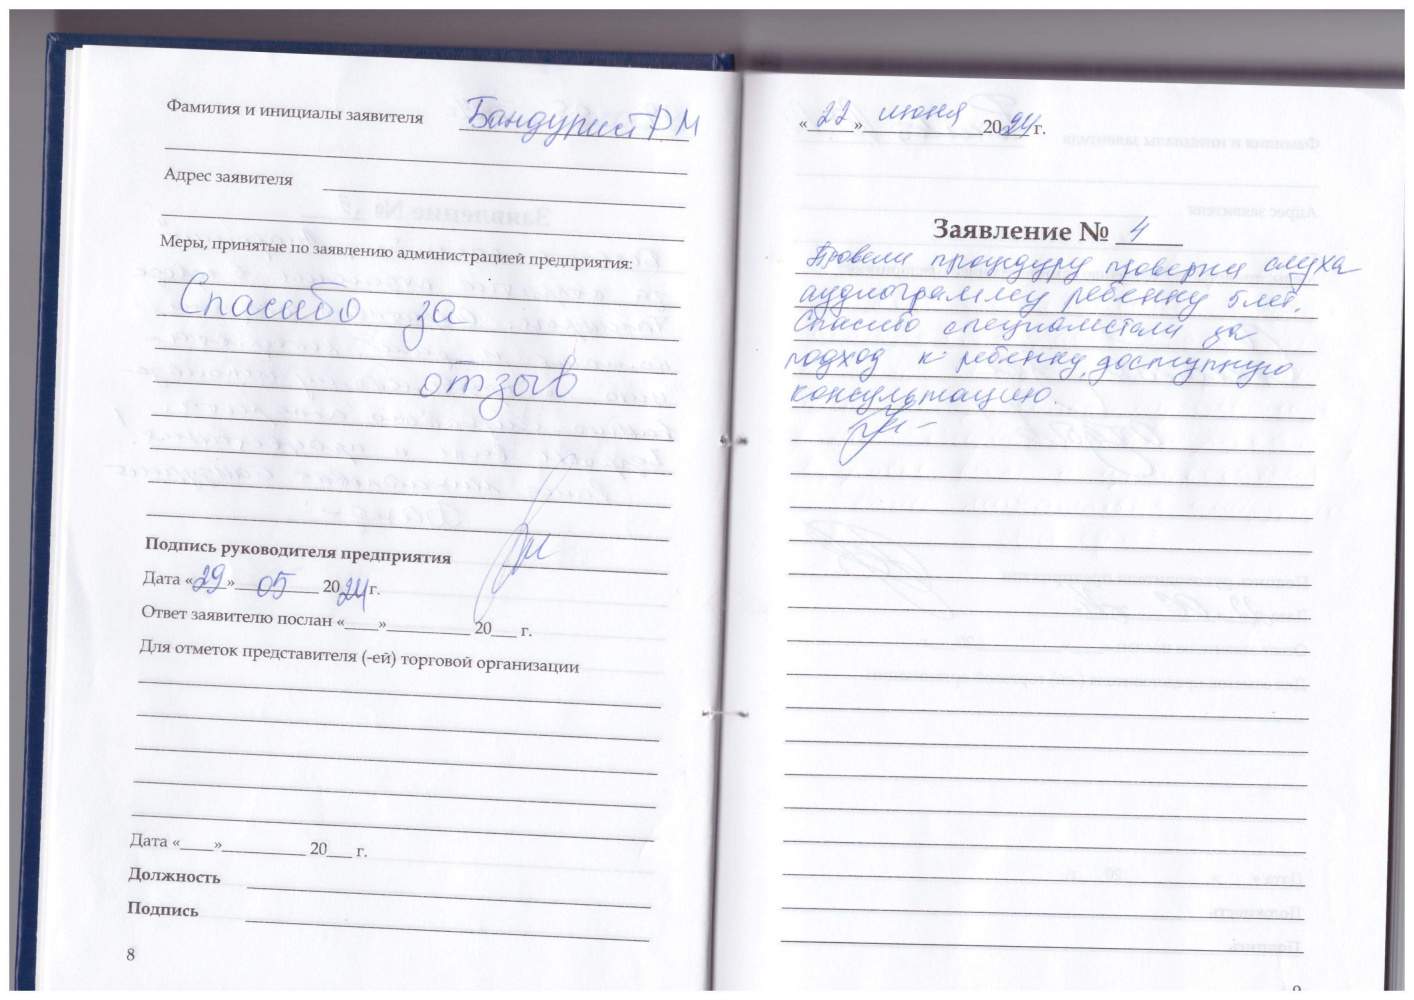 Фамилия и инициалы заявителя Бандурист Р М
Адрес заявителя
Меры, принятые по заявлению администрацией предприятия:
Спасибо за
отзыв
Подпись руководителя предприятия
Дата «29» 05 2024 г.
Ответ заявителю послан «____»__________ 20___ г.
Для отметок представителя (-ей) торговой организации
Дата «____»__________ 20___ г.
Должность
Подпись
8
«22» июня 2024 г.
Заявление № 4
Провели процедуру проверки слуха
аудиограмму ребенку 5 лет.
Спасибо специалистам за
подход к ребенку, доступную
консультацию.